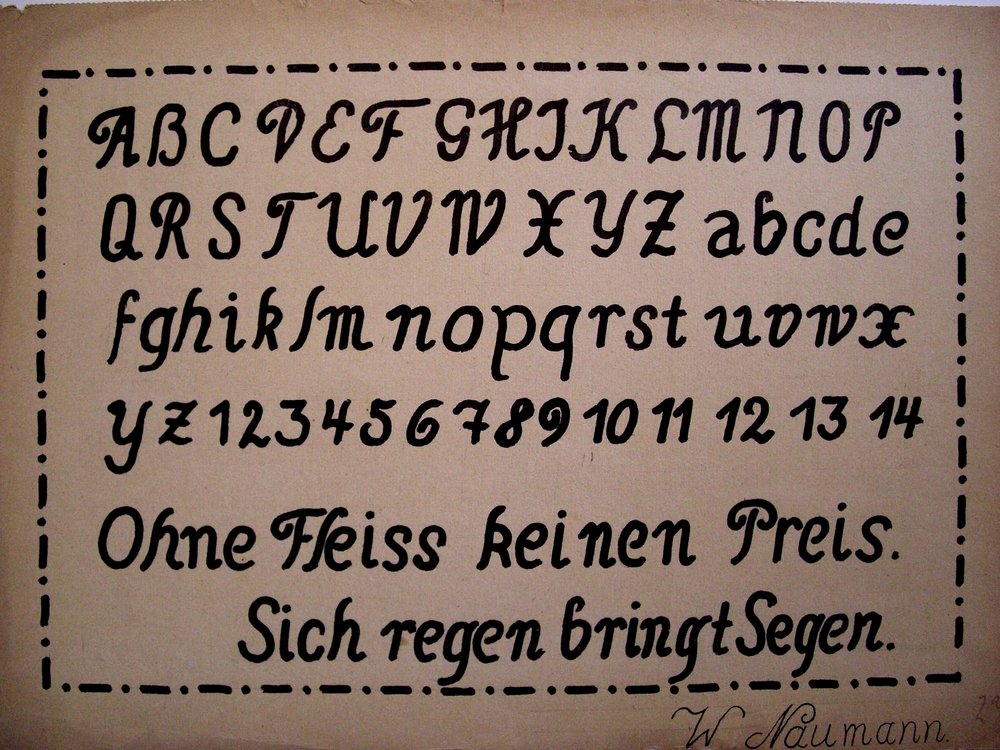 ABC DEF GHIK LM NOP
QRSTUVW XYZ abcde
fghiklm nopqrst uvwx
yz 1 2 3 4 5 6 7 8 9 10 11 12 13 14
Ohne Fleiss keinen Preis.
Sich regen bringt Segen.
W Naumann.